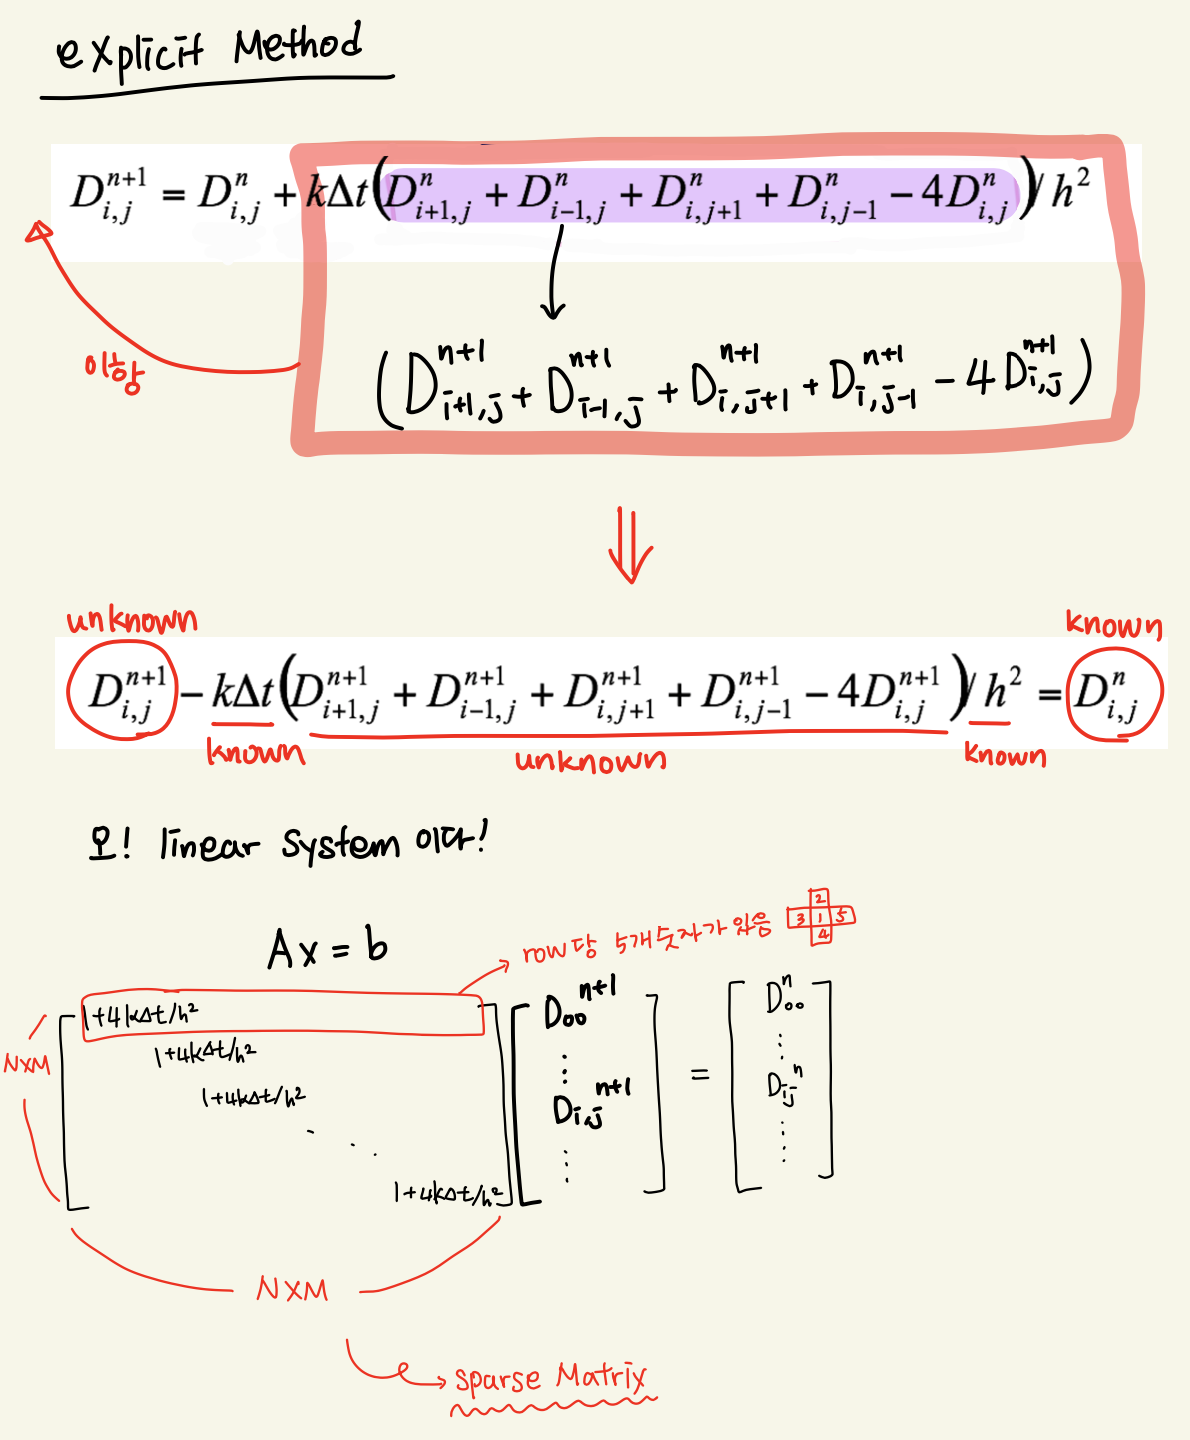 explicit Method
D_{i,j}^{n+1} = D_{i,j}^{n} + kΔt(D_{i+1,j}^{n} + D_{i-1,j}^{n} + D_{i,j+1}^{n} + D_{i,j-1}^{n} − 4D_{i,j}^{n})/h^{2}
이항
(D_{i+1,j}^{n+1} + D_{i-1,j}^{n+1} + D_{i,j+1}^{n+1} + D_{i,j-1}^{n+1} − 4D_{i,j}^{n+1})
⇓
unknown known
D_{i,j}^{n+1} − kΔt(D_{i+1,j}^{n+1} + D_{i-1,j}^{n+1} + D_{i,j+1}^{n+1} + D_{i,j-1}^{n+1} − 4D_{i,j}^{n+1})/h^{2} = D_{i,j}^{n}
known unknown known
오! linear system 이다!
Ax = b
row당 5개 숫자가 있음
2
3 1 5
4
1+4kΔt/h^{2} D_{00}^{n+1} D_{00}^{n}
1+4kΔt/h^{2} ⋮ ⋮
NXM
1+4kΔt/h^{2} D_{i,j}^{n+1} = D_{ij}^{n}
⋱ ⋮ ⋮
1+4kΔt/h^{2}
NXM
sparse Matrix